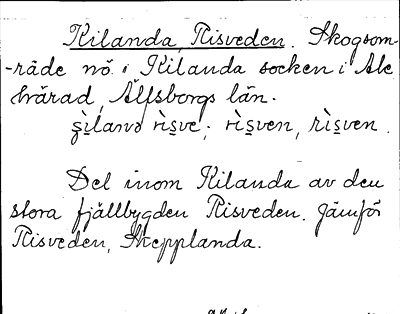 Kilanda Risveden. Skogsom-
-råde nö. i Kilanda socken i Ale
härad, Älfsborgs län.
rìsve; rìsven, rìsven.
Del inom Kilanda av den
stora fjällbygden Risveden. Jämför
Risveden, Skepplanda.